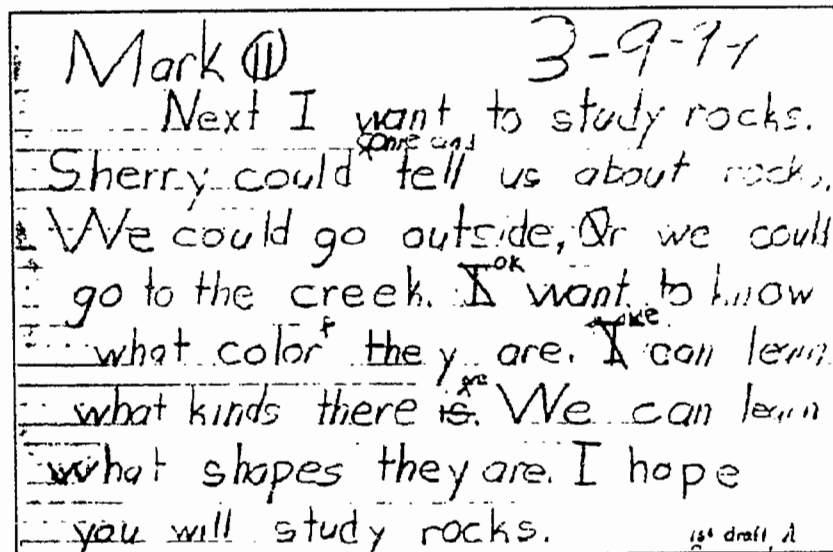 Mark 11 3-9-94
Next I want to study rocks.
come and
Sherry could tell us about rocks.
We could go outside, Or we could
go to the creek. I ok want to know
what color they are. I we can learn
what kinds there is. are We can learn
what shapes they are. I hope
you will study rocks.
1st draft